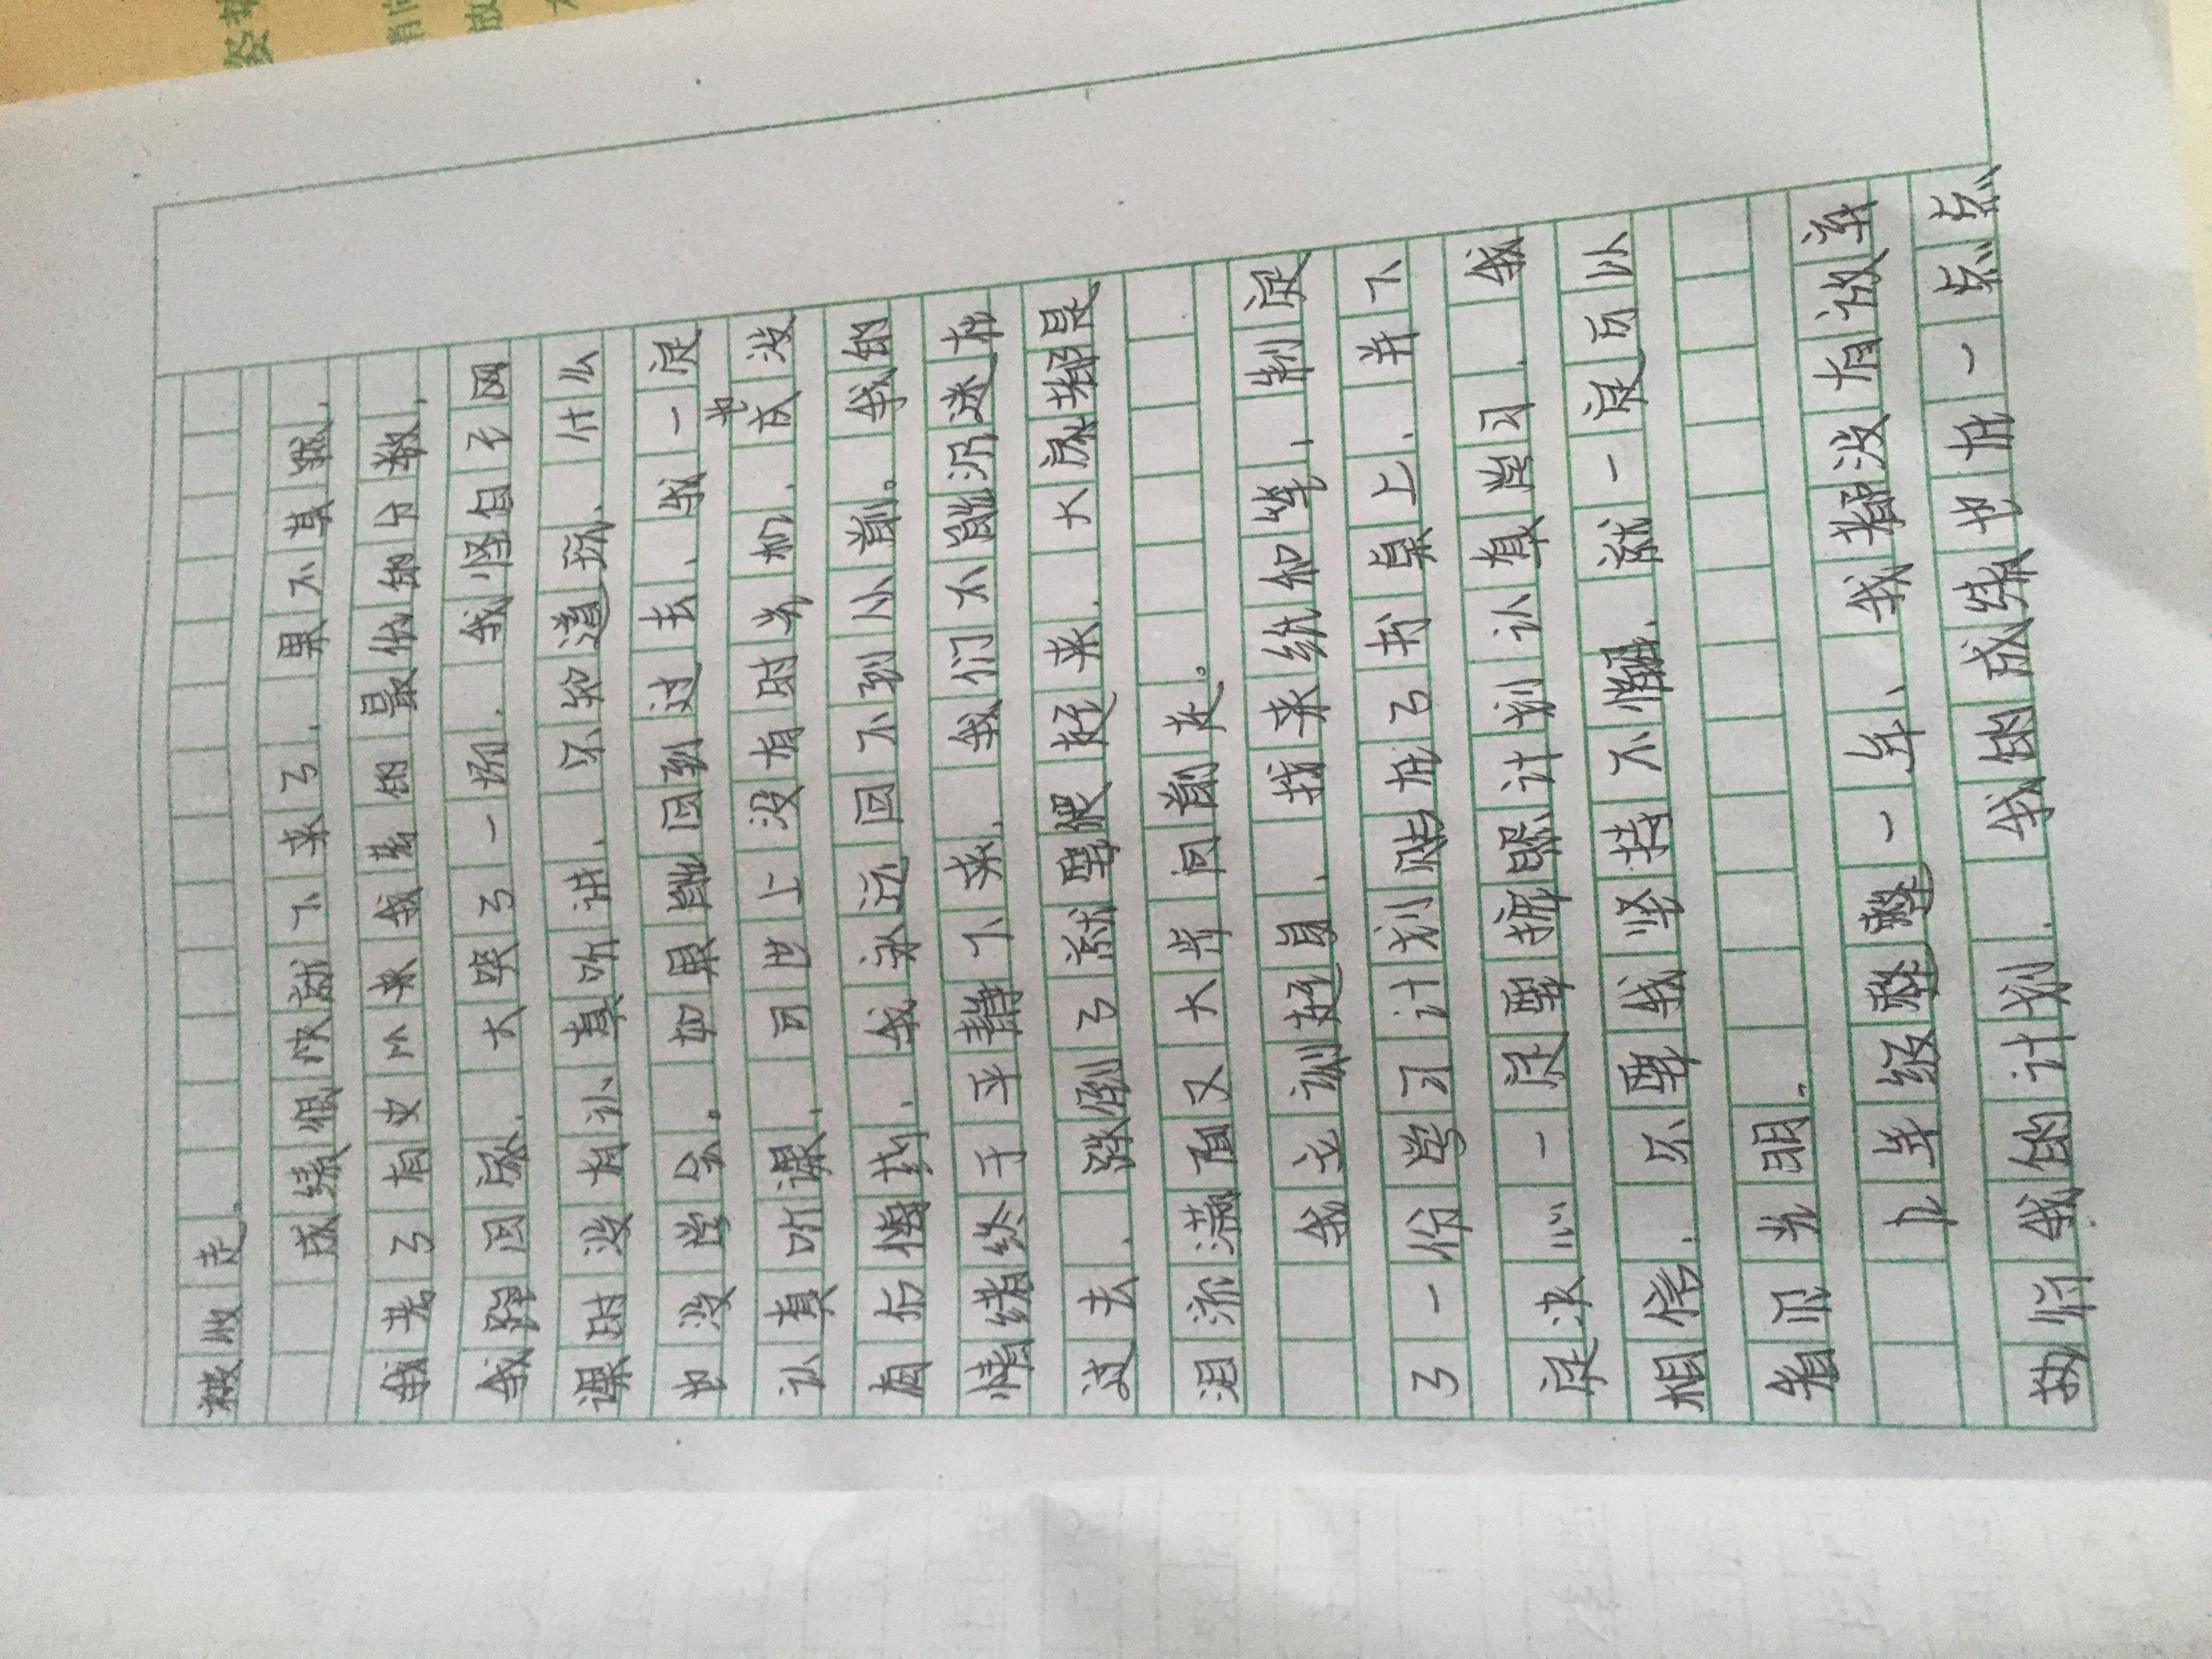 被收走。
成绩很快就下来了，果不其然，
我考了有史以来我考的最低的分数，
我跑回家，大哭了一场，我怪自己网
课时没有认真听讲，只知道玩，什么
也没学会。如果能回到过去，我一定
认真听课，可世上没有时光机，也没
有后悔药，我永远回不到从前。我的
情绪终于平静下来，我们不能沉迷在
过去，跌倒了就要爬起来，大家都是
泪流满面又大步向前走。
我立刻起身，找来纸和笔，制定
了一份学习计划贴在了书桌上，并下
定决心一定要按照计划认真学习，我
相信，只要我坚持不懈，就一定可以
看见光明。
上年级整整一年，我都没有放弃
执行我的计划，我的成绩也在一点点